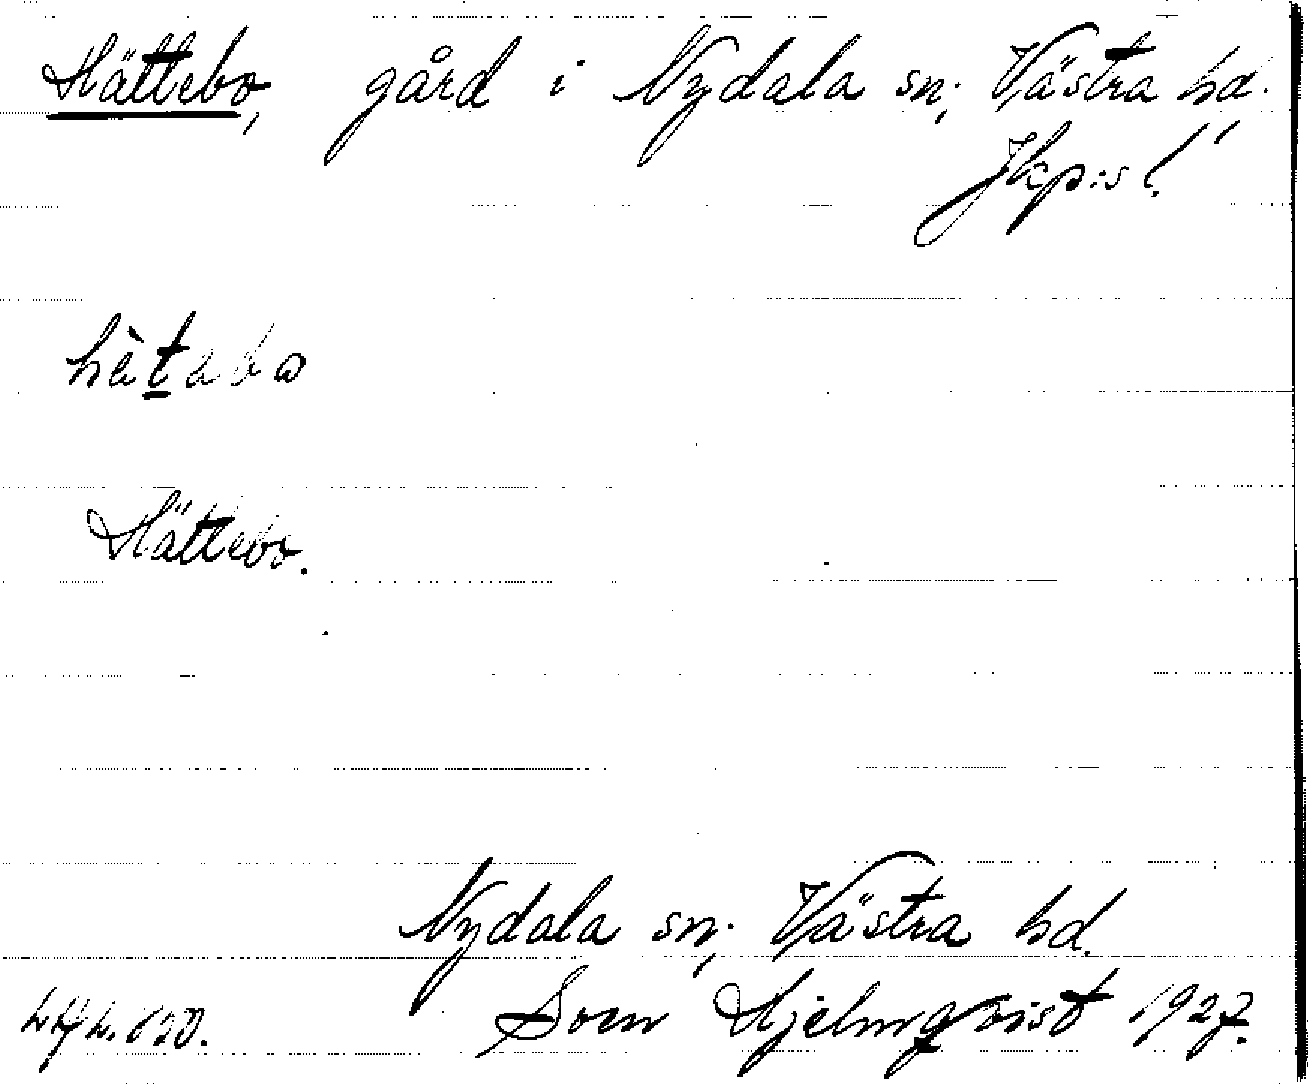 Hättebo, gård i Nydala sn., Västra hd.
Jkp:s l.
hètabo
Hättebo.
Nydala sn., Västra hd.
Sven Hjelmqvist 1927.